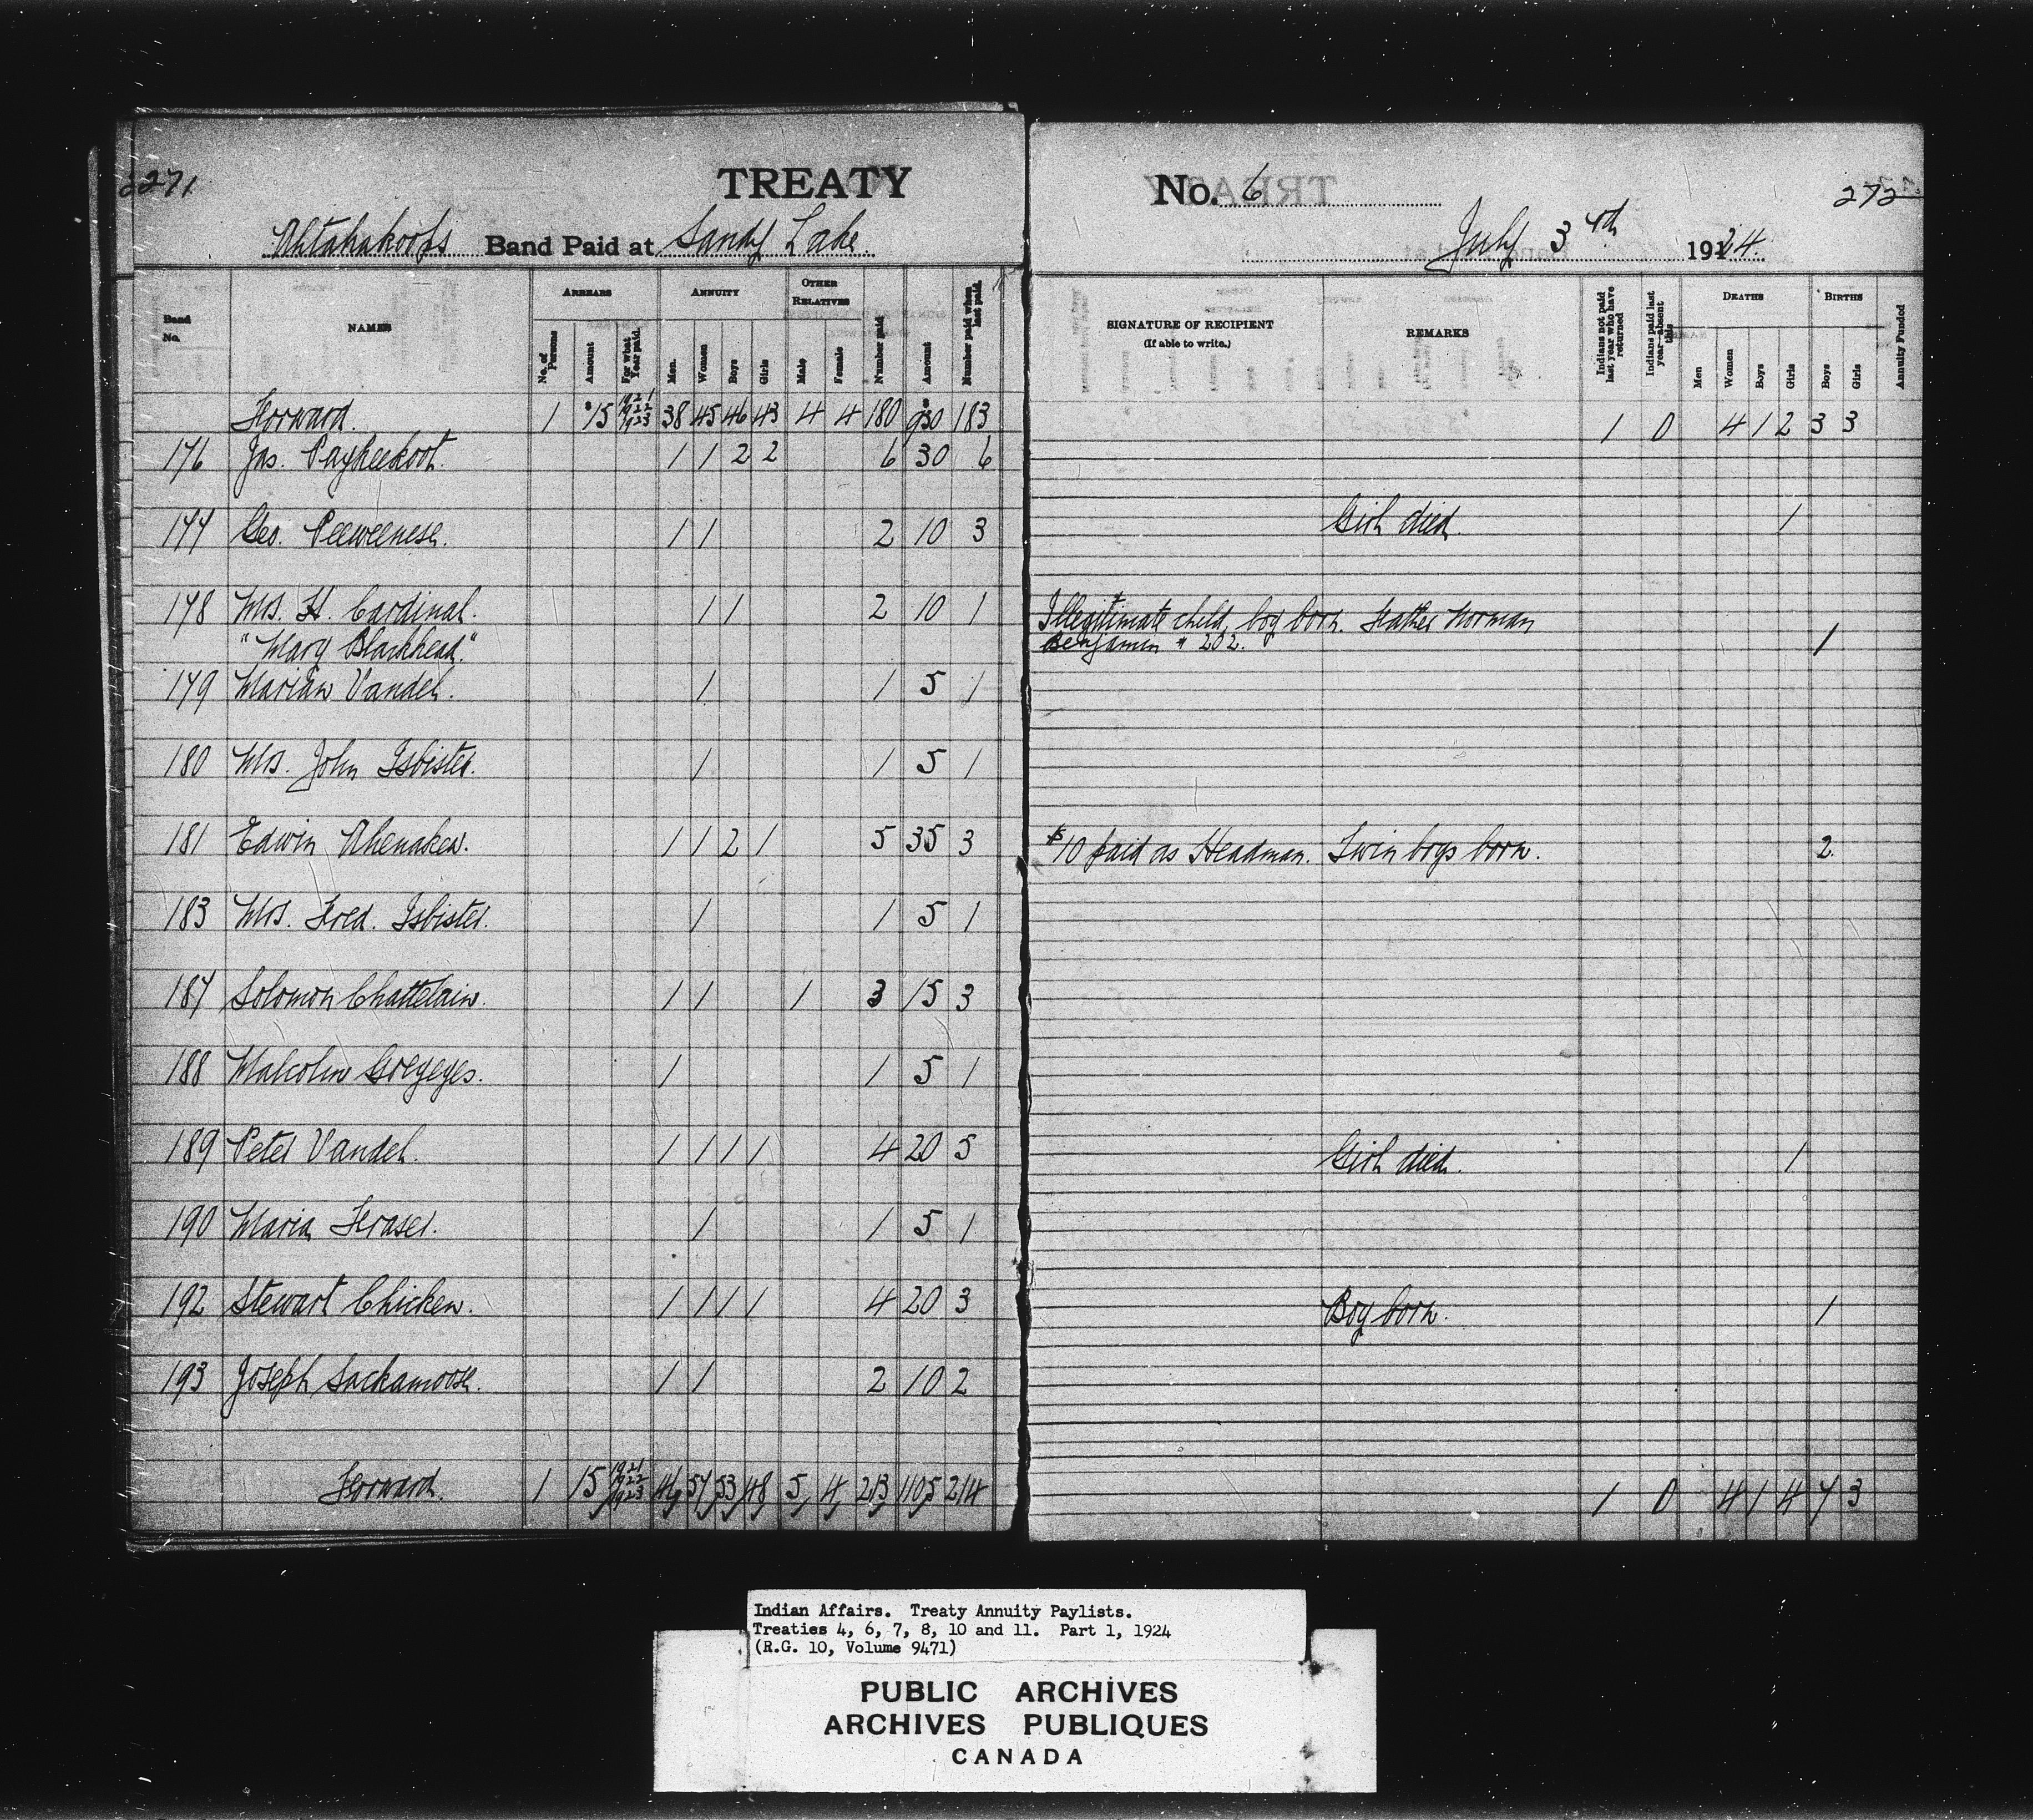 271 TREATY
Ahtahakoops Band Paid at Sandy Lake
No. 6 272
July 3rd 1924.
Band No. NAMES ARREARS ANNUITY OTHER RELATIVES Number paid Amount Number paid when last paid.
No. of Persons Amount For what Year paid. Men. Women Boys Girls Male Female
SIGNATURE OF RECIPIENT (If able to write.) REMARKS Indians not paid last year who have returned Indians paid last year—absent this DEATHS BIRTHS Annuity Funded
Men Women Boys Girls Boys Girls
Forward. 1 $15 1921 1922 1923 38 45 46 43 4 4 180 $930 183 1 0 4 1 2 3 3
176 Jas. Payheekoot. 1 1 2 2 6 30 6
177 Geo. Peeweenese. 1 1 2 10 3 Girl died. 1
178 Mrs. H. Cardinal. 1 1 2 10 1 Illegitimate child, boy born. Father Norman
"Mary Blackhead." Benjamin # 202. 1
179 Marian Vandel. 1 1 5 1
180 Mrs. John Isbister. 1 1 5 1
181 Edwin Ahenakew. 1 1 2 1 5 35 3 $10 paid as Headman. Twin boys born. 2.
183 Mrs. Fred. Isbister. 1 1 5 1
187 Solomon Chattelain. 1 1 1 3 15 3
188 Malcolm Greyeyes. 1 1 5 1
189 Peter Vandel. 1 1 1 1 4 20 5 Girl died. 1
190 Maria Fraser. 1 1 5 1
192 Stewart Chicken. 1 1 1 1 4 20 3 Boy born. 1
193 Joseph Sackamoose. 1 1 2 10 2
Forward. 1 15 1921 1922 1923 46 57 53 48 5 4 213 1105 214 1 0 4 1 4 7 3
Indian Affairs. Treaty Annuity Paylists.
Treaties 4, 6, 7, 8, 10 and 11. Part 1, 1924
(R.G. 10, Volume 9471)
PUBLIC ARCHIVES
ARCHIVES PUBLIQUES
CANADA